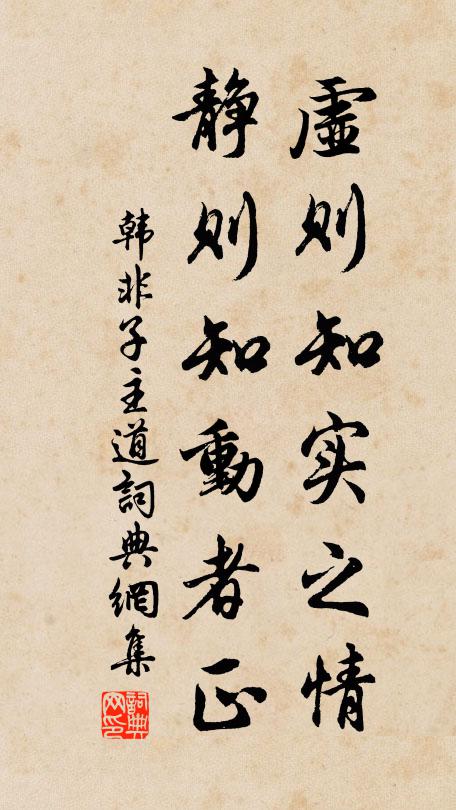 虚则知实之情
静则知動者正
韩非子主道詞典網集
詞典网印